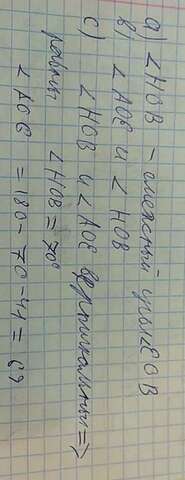 а) ∠HOB - смежный углы∠EOB
в) ∠AOE и ∠HOB
с) ∠HOB и ∠AOE вертикальный =>
равны ∠HOB = 70°
∠AOC = 180 - 70 - 41 = 69